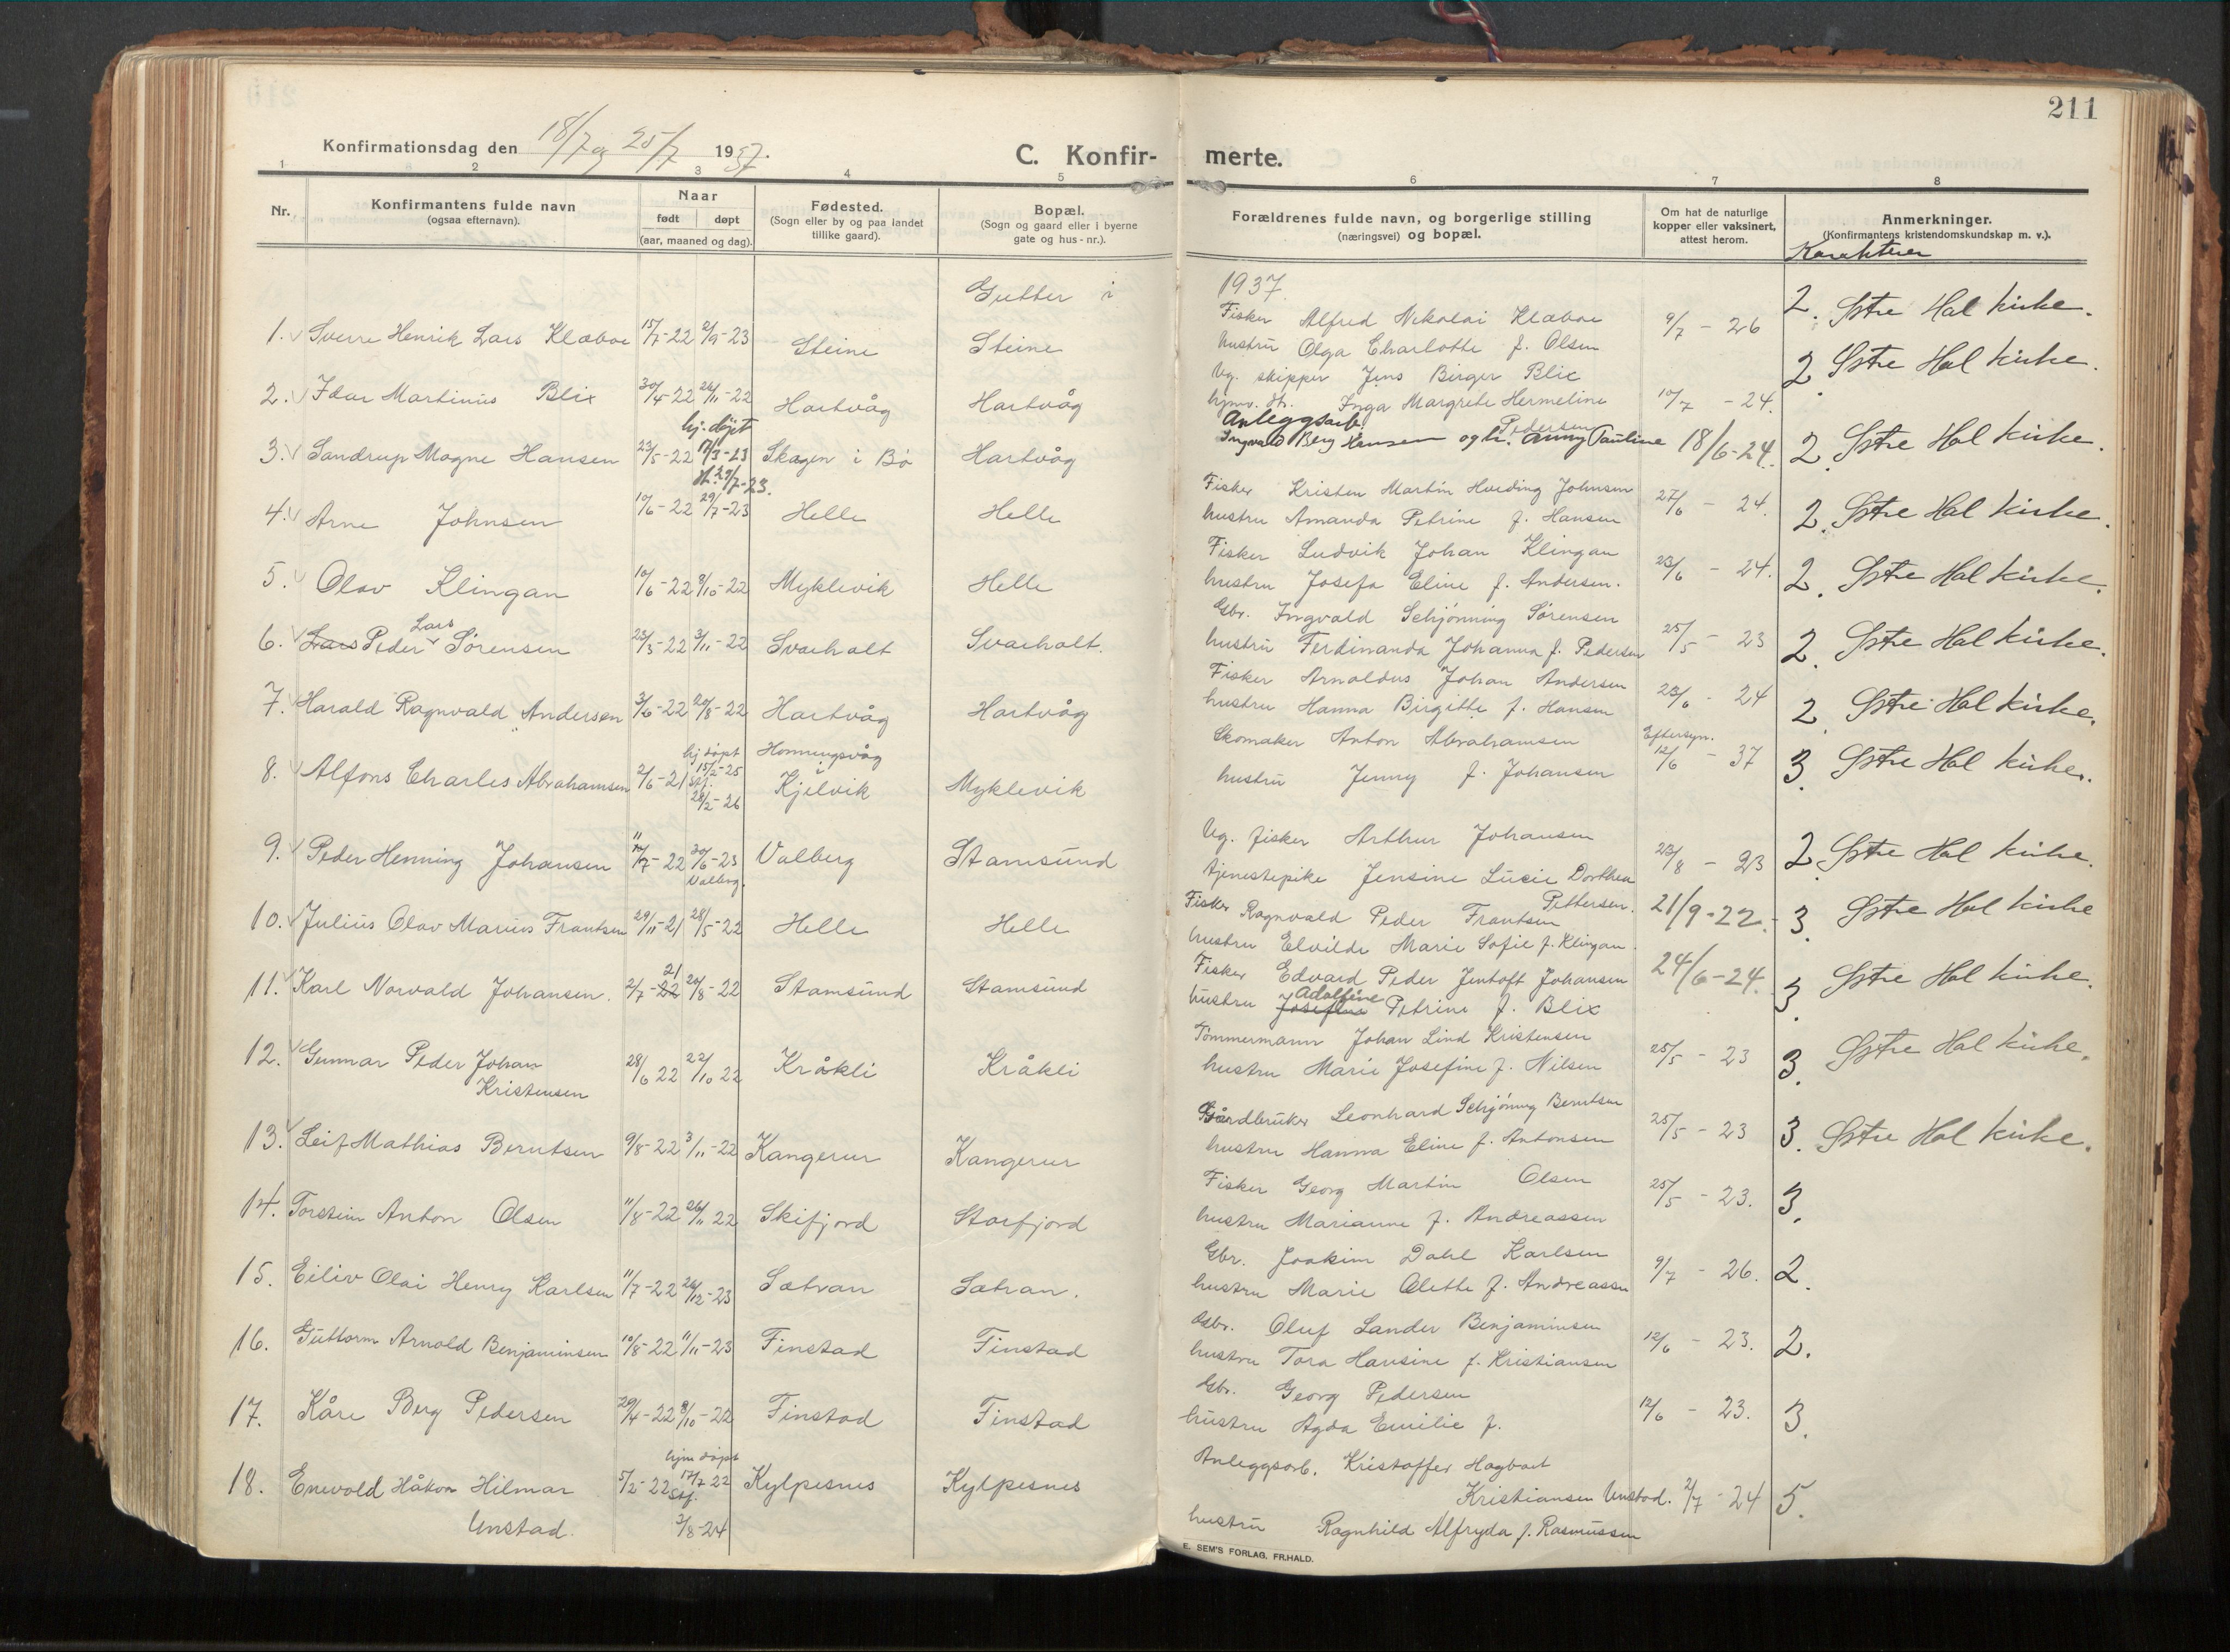 211
Konfirmationsdag den 18/7 og 25/7 1937.
C. Konfir- merte.
1 2 3 4 5 6 7 8
Nr.
Konfirmantens fulde navn
(ogsaa efternavn).
Naar
født døpt
(aar, maaned og dag).
Fødested.
(Sogn eller by og paa landet
tillike gaard).
Bopæl.
(Sogn og gaard eller i byerne
gate og hus-nr.).
Forældrenes fulde navn, og borgerlige stilling
(næringsvei) og bopæl.
Om hat de naturlige
kopper eller vaksinert,
attest herom.
Anmerkninger.
(Konfirmantens kristendomskundskap m. v.).
Karakterer
Gutter i 1937
1. Sverre Henrik Lars Klæboe 15/7-22 2/9-23 Steine Steine
Fisker Alfred Nikolai Klæboe
hustru Olga Charlotte f. Olsen
9/7 - 26 2. Østre Hol kirke.
2. Idar Martinus Blix 30/4-22 26/11-22 Hartvåg Hartvåg
Ug. skipper Jens Birger Blix
Inga Margrete Hermeline
Pedersen
10/7 - 24. 2. Østre Hol kirke.
hj. døpt
3. Sandrup Magne Hansen 23/5-22 17/3-23 Skagen i Bø Hartvåg
st. 29/7-23.
Anleggsarb.
Ingvald Berg Hansen og h. Anny Pauline
18/6-24. 2. Østre Hol kirke.
4. Arne Johnsen 10/6-22 29/7-23 Helle Helle
Fisker Kristen Martin Hveding Johnsen
hustru Amanda Petrine f. Hansen
27/6 - 24. 2. Østre Hol kirke.
5. Olav Klingan 10/6-22 8/10-22 Myklevik Helle
Fisker Ludvik Johan Klingan
hustru Josefa Eline f. Andersen.
23/6 - 24. 2. Østre Hol kirke.
Lars
6. Lars Peder Sørensen 23/5-22 3/11-22 Svarholt Svarholt.
Gbr. Ingvald Schjønning Sørensen
hustru Ferdinanda Johanna f. Pedersen
25/5 - 23 2. Østre Hol kirke.
7. Harald Ragnvald Andersen 3/6-22 20/8-22 Hartvåg Hartvåg
Fisker Arnoldus Johan Andersen
hustru Hanna Birgitte f. Hansen
23/6 - 24 2. Østre Hol kirke.
hj døpt Honningsvåg
8. Alfons Charles Abrahamsen 2/6-21 15/2-25 i Kjelvik Myklevik
stf.
28/2-26
Skomaker Anton Abrahamsen
hustru Jenny f. Johansen
Eftersyn.
12/6 - 37 3. Østre Hol kirke.
9. Peder Henning Johansen 11/7-22 30/6-23 Valberg Stamsund
Valberg.
Ug. fisker Arthur Johansen
tjenestepike Jensine Lucie Dorthea
Pettersen.
23/8 - 23 2. Østre Hol kirke.
10. Julius Olav Marius Frantsen 29/11-21 28/5-22 Helle Helle
Fisker Ragnvald Peder Frantsen
hustru Elvilde Marie Sofie f. Klingan.
21/9-22. 3. Østre Hol kirke
21
11. Karl Norvald Johansen. 2/7-22 20/8-22 Stamsund Stamsund
Fisker Edvard Peder Jentoft Johansen
Adolfine
hustru Josefine Petrine f. Blix
24/6-24. 3. Østre Hol kirke.
12. Gunnar Peder Johan
Kristensen
28/6 22 22/10 22 Kråkli Kråkli
Tømmermann Johan Lind Kristensen
hustru Marie Josefine f. Nilsen
25/5 - 23 3. Østre Hol kirke.
13. Leif Mathias Berntsen 9/8-22 3/11-22 Kangerur Kangerur
Gårdbruker Leonhard Schjøning Berntsen
hustru Hanna Eline f. Antonsen
25/5 - 23 3. Østre Hol kirke.
14. Torstein Anton Olsen 11/8-22 26/11 22 Skifjord Storfjord
Fisker Georg Martin Olsen
hustru Marianne f. Andreassen
25/5 - 23. 3.
15. Eiliv Olai Henry Karlsen 11/7-22 26/12-23 Sætran Sætran.
Gbr. Joakim Dahl Karlsen
hustru Marie Olette f. Andreassen
9/7 - 26. 2.
16. Guttorm Arnold Benjaminsen 10/8-22 11/11-23 Finstad Finstad
Gbr. Oluf Sander Benjaminsen
hustru Tora Hansine f. Kristiansen
12/6 - 23. 2.
17. Kåre Berg Pedersen 29/4-22 8/10-22 Finstad Finstad
Gbr. Georg Pedersen
hustru Agda Emilie f.
12/6 - 23. 3.
hjm døpt
18. Enevold Håkon Hilmar
Unstad.
5/2-22 17/7 22 Kylpesnes Kylpesnes
stf.
3/8-24
Anleggsarb. Kristoffer Hagbart
Kristiansen Unstad.
hustru Ragnhild Alfryda f. Rasmussen
2/7 - 24 5.
E. SEM'S FORLAG. FR.HALD.